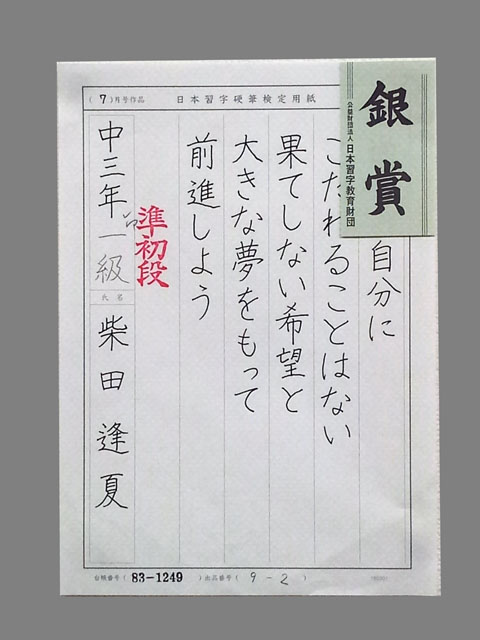 (7)月号作品
日本習字硬筆検定用紙
銀賞
公益財団法人 日本習字教育財団
自分に
こだわることはない
果てしない希望と
大きな夢をもって
前進しよう
準初段
中三年 一級
氏名
柴田逢夏
台帳番号(83-1249)出品番号(9-2)